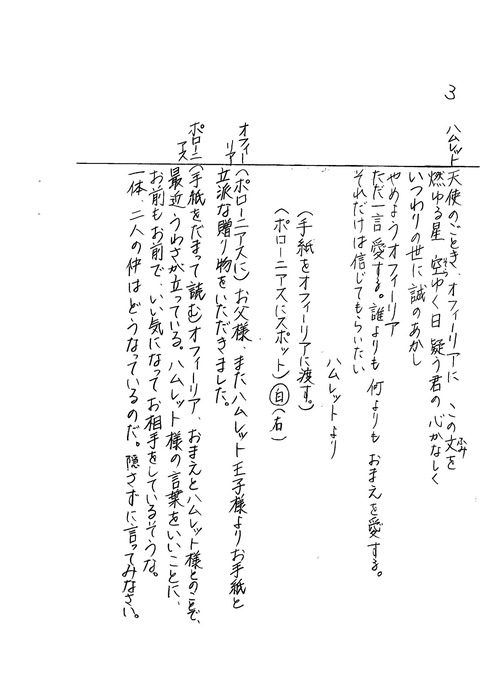 3
ハムレット 天使のごとき、オフィーリアに この文を
ふみ
燃ゆる星 空ゆく日 疑う君の 心かなしく
いつわりの世に 誠のあかし
やめようオフィーリア
ただ一言 愛する。誰よりも 何よりも おまえを愛する。
それだけは信じてもらいたい
ハムレットより
(手紙をオフィーリアに渡す。)
(ポローニアスにスポット) 白 (右)
オフィーリア (ポローニアスに) お父様、またハムレット王子様よりお手紙と
立派な贈り物をいただきました。
ポローニアス (手紙をだまって読む) オフィーリア、おまえとハムレット様とのことで、
最近、うわさが立っている。ハムレット様の言葉をいいことに、
お前もお前で、いい気になってお相手をしているそうな。
一体、二人の仲はどうなっているのだ。隠さずに言ってみなさい。